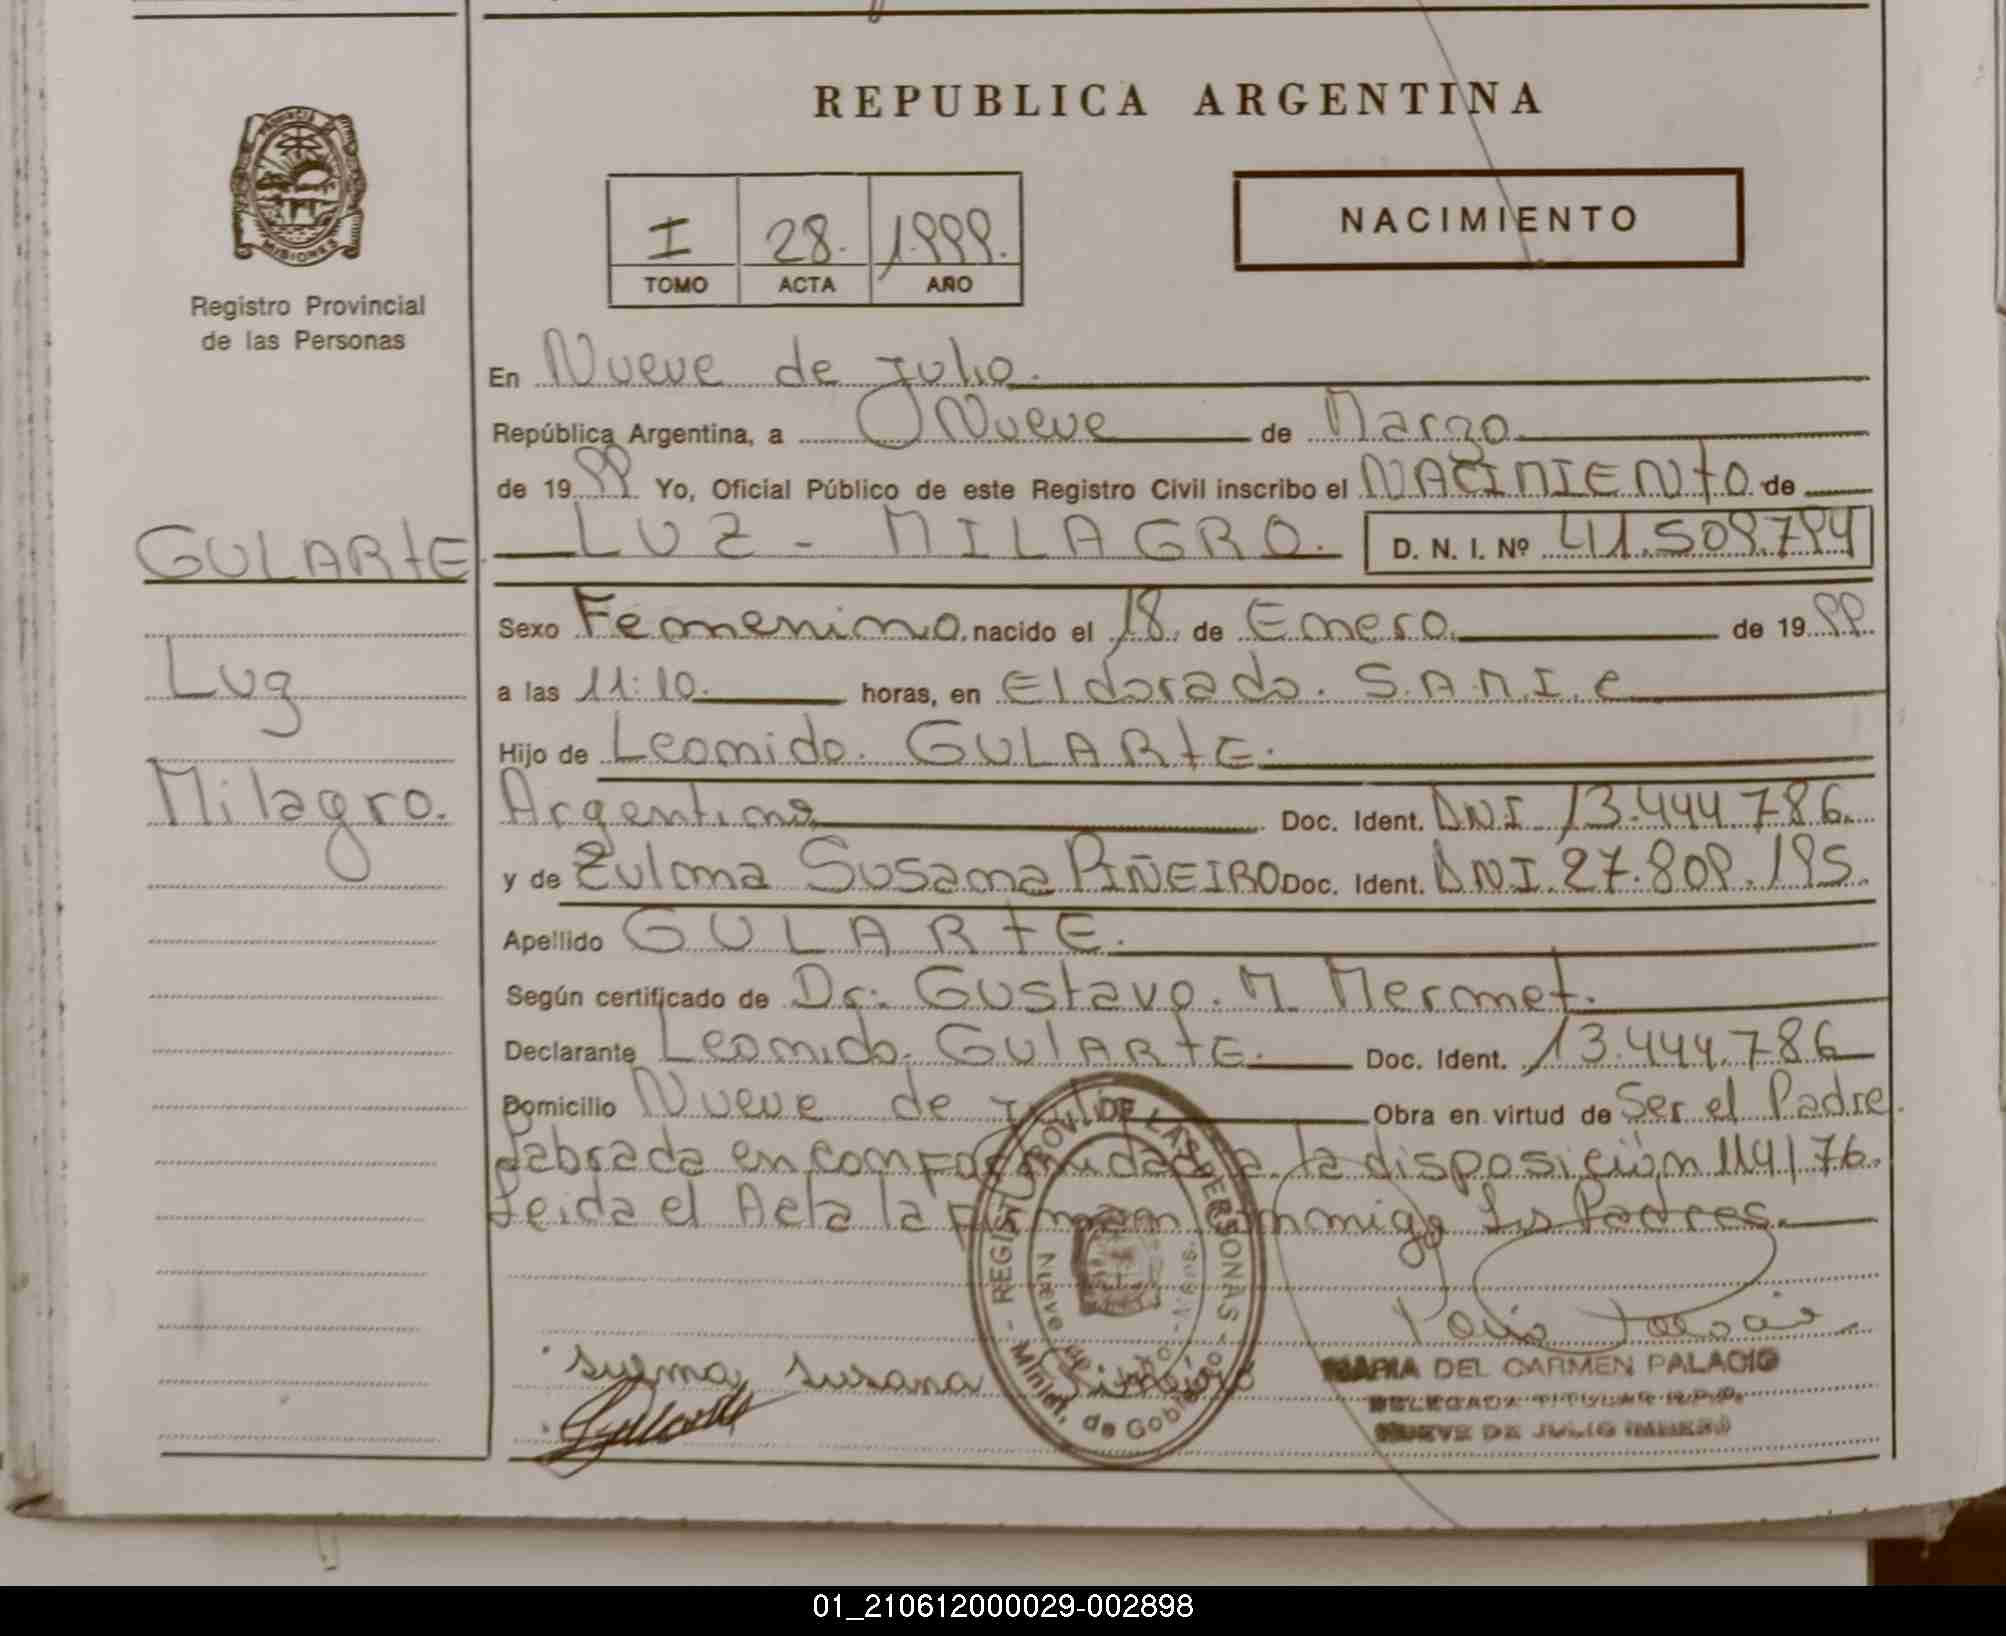 REPUBLICA ARGENTINA
PROVINCIA DE
MISIONES
Registro Provincial
de las Personas
I 28. 1.999.
TOMO ACTA AÑO
NACIMIENTO
En Nueve de Julio.
República Argentina, a Nueve de Marzo
de 1999 Yo, Oficial Público de este Registro Civil inscribo el NACIMIENTO de
GULARTE LUZ - MILAGRO. D. N. I. Nº 41.509.794
Luz
Milagro.
Sexo Femenino, nacido el 18. de Enero de 1999.
a las 11:10. horas, en Eldorado. S.A.M.I.C
Hijo de Leonido. GULARTE.
Argentina Doc. Ident. DNI 13.444.786.
y de Zulma Susana PIÑEIRO Doc. Ident. DNI. 27.809.195.
Apellido GULARTE.
Según certificado de Dr. Gustavo. M. Mermet.
Declarante Leonido. GULARTE. Doc. Ident. 13.444.786
Domicilio Nueve de Julio Obra en virtud de Ser el Padre.
Labrada en conformidad a la disposición 114/76.
Leida el Acta la firman conmigo Los Padres.
REGISTRO PROV. DE LAS PERSONAS - Minist. de Gobierno
Nueve de Julio - Mnes.
Sulma Susana
MARIA DEL CARMEN PALACIO
DELEGADA TITULAR R.P.P.
NUEVE DE JULIO (MNES)
01_210612000029-002898